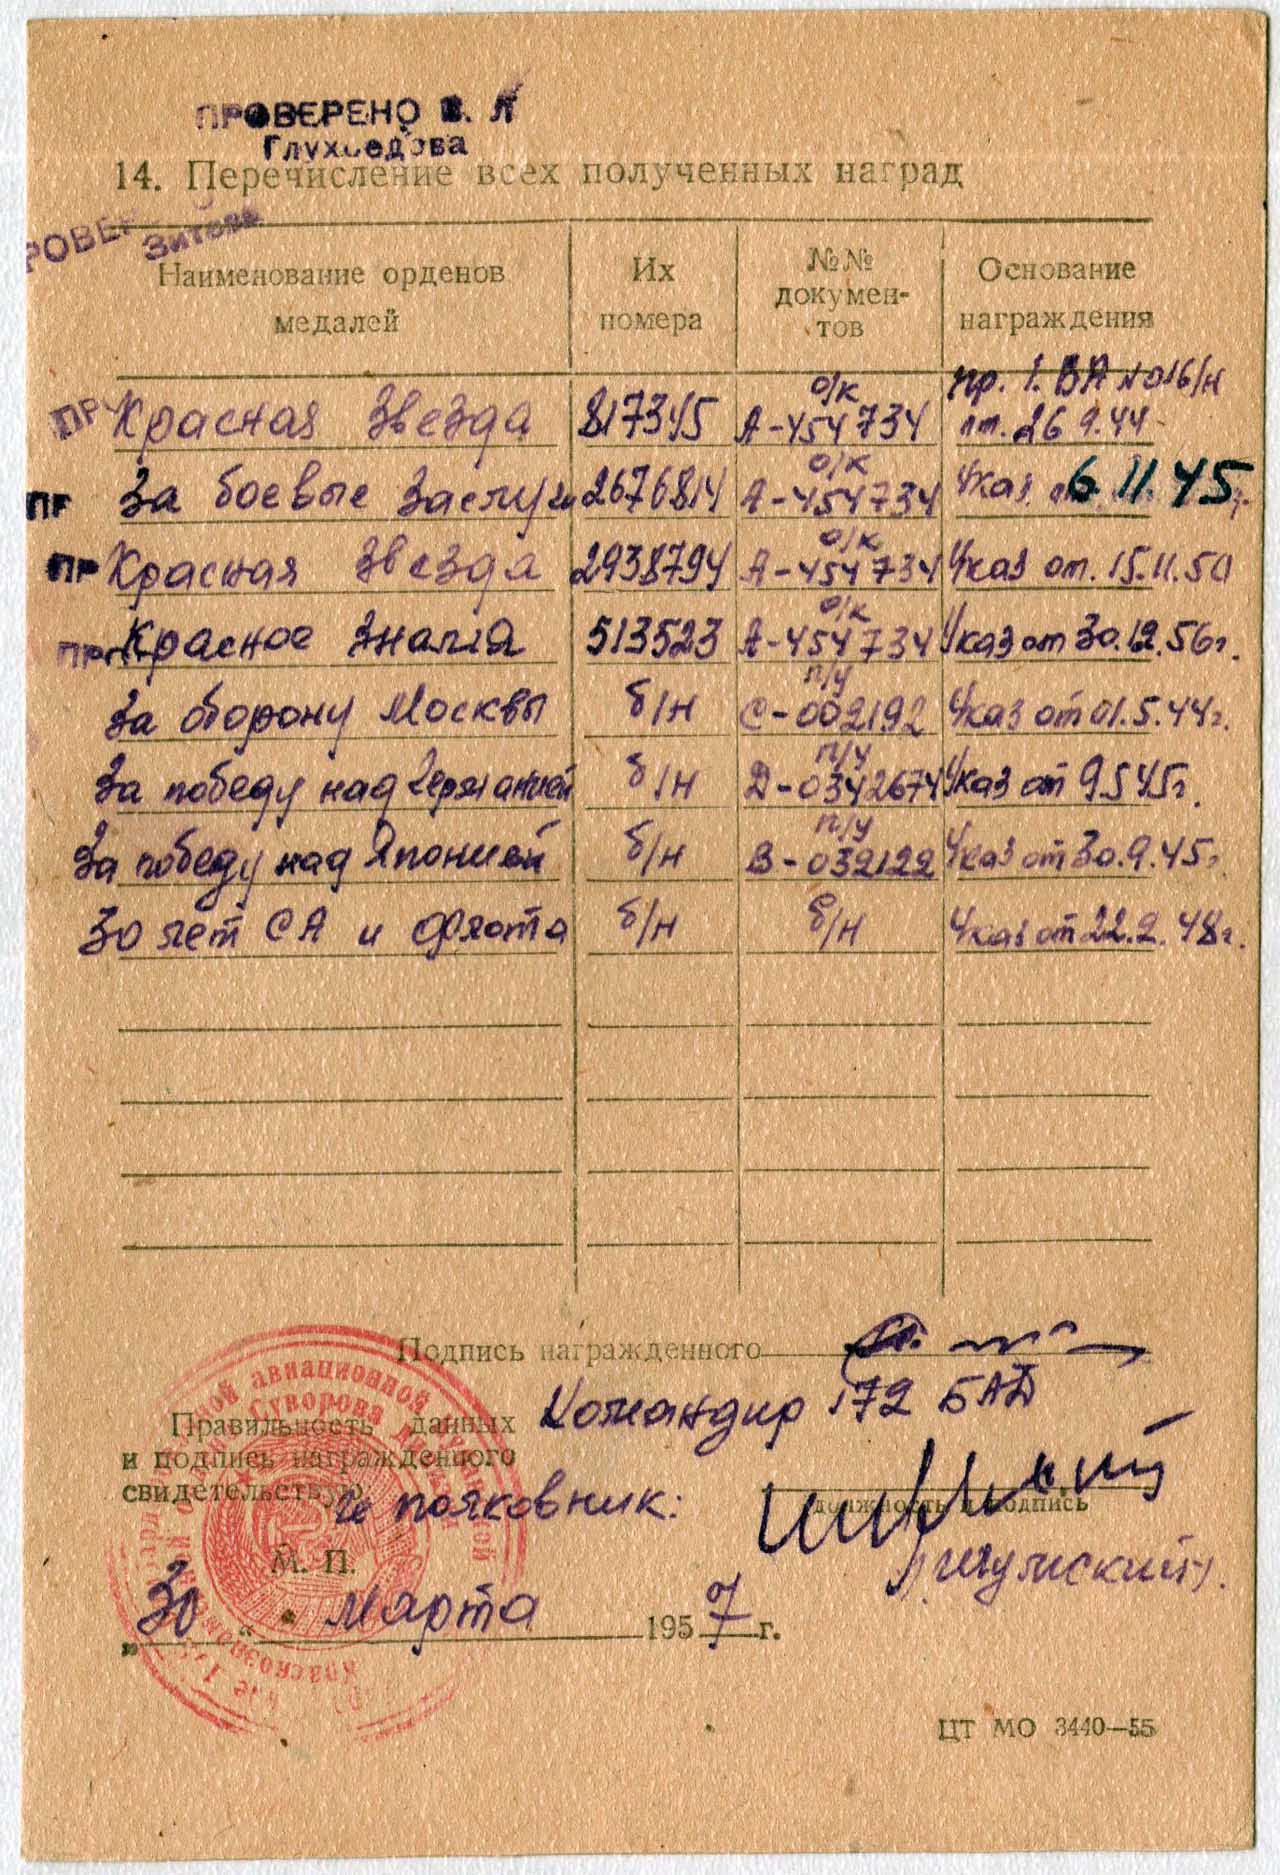 ПРОВЕРЕНО
14. Перечисление всех полученных наград
Зитева
Наименование орденов медалей
Их номера
№№ докумен-тов
Основание награждения
Красная Звезда 817345 о/к А-454734 пр. 1. ВА №016/н от. 26 9.44
ПР За боевые заслуги 2676814 о/к А-454734 Указ от 6.11.45
ПР Красная Звезда 2938794 о/к А-454734 Указ от. 15.11.50
Красное Знамя 513523 о/к А-454734 Указ от 30.12.56г.
За оборону Москвы б/н п/у С-002192 Указ от 01.5.44г.
За победу над Германией б/н п/у Д-0342674 Указ от 9545г.
За победу над Японией б/н п/у В-032122 Указ от 30.9.45г.
30 лет СА и Флота б/н б/н Указ от 22.2.48г.
Подпись награжденного
Командир 172 БАД
Правильность данных
и подпись награжденного
свидетельствую
полковник:
должность и подпись
М. П.
„30“ Марта 1957 г.
ЦТ МО 3440—55